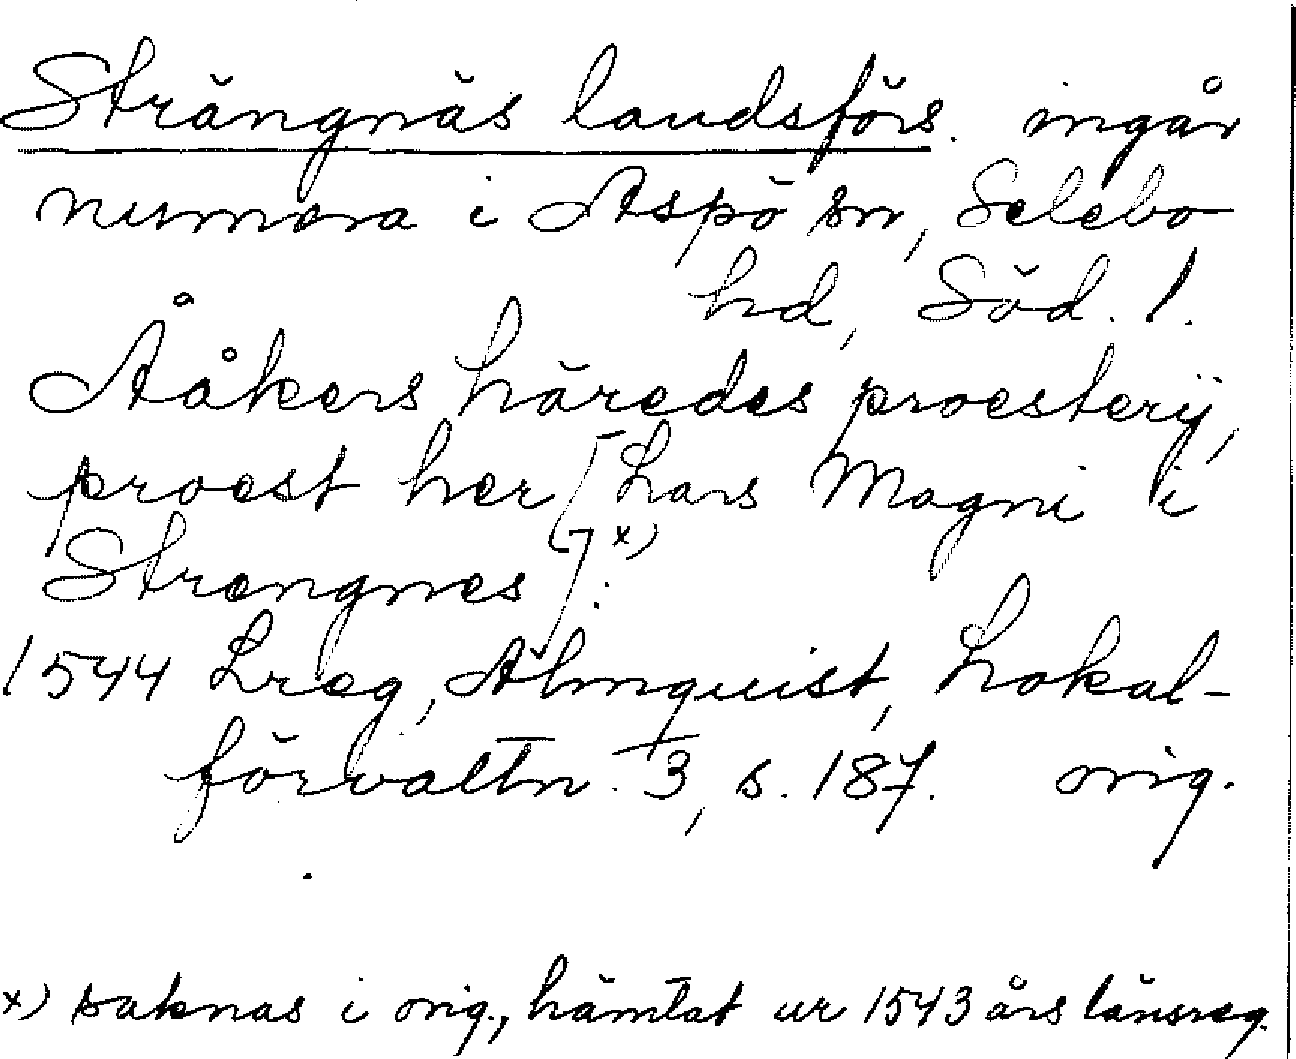 Strängnäs landsförs. ingår
numera i Aspö sn, Selebo
hd, Söd. l.
Ååkers häredes proesterij,
proest her [Lars Magni i
Strengnes] x):
1544 Lreg, Almquist, Lokal-
förvaltn. 3, s. 187. orig.
x) saknas i orig., hämtat ur 1543 års länsreg.